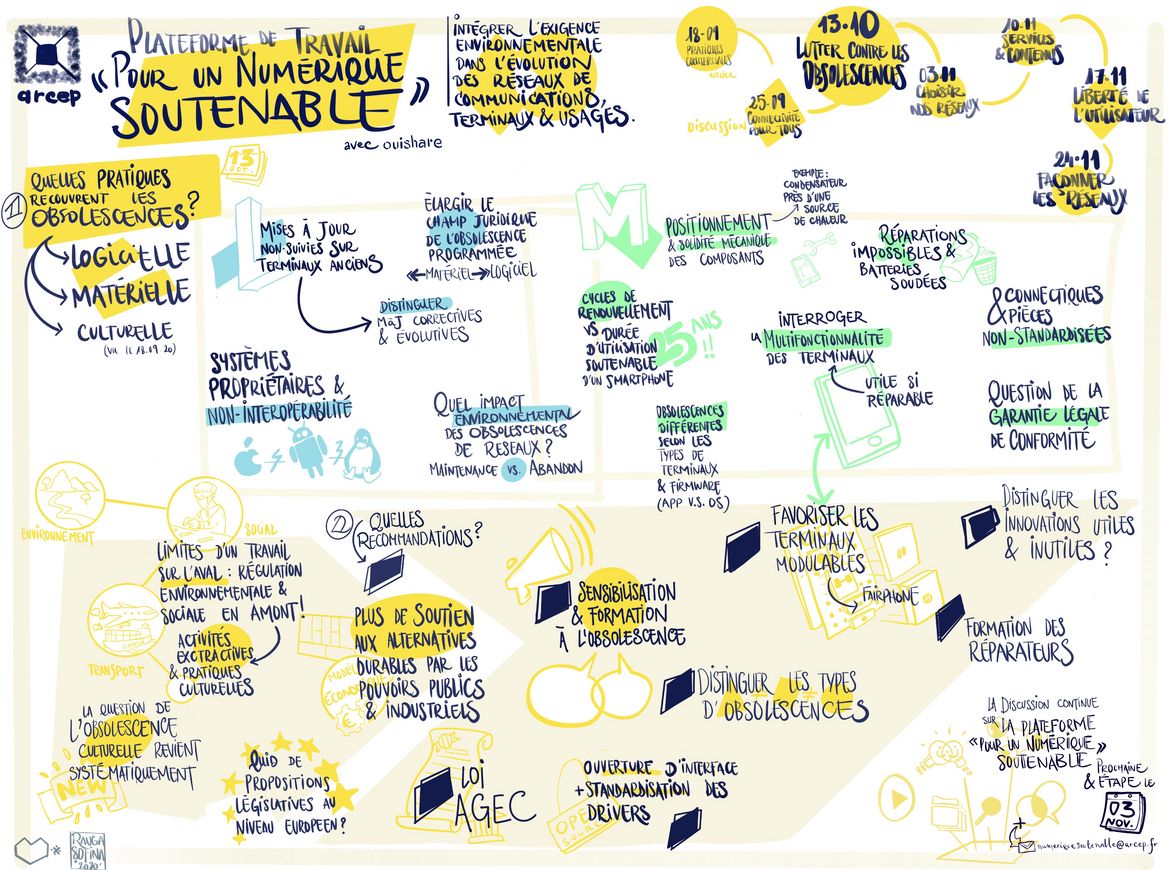 arcep
PLATEFORME DE TRAVAIL
« POUR UN NUMÉRIQUE
SOUTENABLE »
avec ouishare
INTÉGRER L'EXIGENCE
ENVIRONNEMENTALE
DANS L'ÉVOLUTION
DES RÉSEAUX DE
COMMUNICATIONS,
TERMINAUX & USAGES.
18-09
PRATIQUES
COMMERCIALES
atelier
Discussion
25.09
CONNECTIVITÉ
POUR TOUS
13.10
LUTTER CONTRE LES
OBSOLESCENCES
03.11
CHOISIR
NOS RÉSEAUX
10-11
SERVICES
& CONTENUS
17-11
LIBERTÉ DE
L'UTILISATEUR
24-11
FAÇONNER
LES RÉSEAUX
13
OCT.
1
QUELLES PRATIQUES
RECOUVRENT LES
OBSOLESCENCES?
LOGICIELLE
MATÉRIELLE
CULTURELLE
(VU LE 18.09 20)
L
MISES À JOUR
NON-SUIVIES SUR
TERMINAUX ANCIENS
ÉLARGIR LE
CHAMP JURIDIQUE
DE L'OBSOLESCENCE
PROGRAMMÉE
MATÉRIEL LOGICIEL
DISTINGUER
MÀJ CORRECTIVES
& ÉVOLUTIVES
SYSTÈMES
PROPRIÉTAIRES &
NON-INTEROPÉRABILITÉ
QUEL IMPACT
ENVIRONNEMENTAL
DES OBSOLESCENCES
DE RESEAUX ?
MAINTENANCE VS. ABANDON
M
POSITIONNEMENT
& SOLIDITÉ MÉCANIQUE
DES COMPOSANTS
EXEMPLE :
CONDENSATEUR
PRÈS D'UNE
SOURCE
DE CHALEUR
RÉPARATIONS
IMPOSSIBLES &
BATTERIES
SOUDÉES
CYCLES DE
RENOUVELLEMENT
VS DURÉE
D'UTILISATION
SOUTENABLE
D'UN SMARTPHONE
25 ANS
!!
INTERROGER
LA MULTIFONCTIONNALITÉ
DES TERMINAUX
UTILE SI
RÉPARABLE
& CONNECTIQUES
PIÈCES
NON-STANDARDISÉES
OBSOLESCENCES
DIFFÉRENTES
SELON LES
TYPES DE
TERMINAUX
& FIRMWARE
(APP V.S. OS.)
QUESTION DE LA
GARANTIE LÉGALE
DE CONFORMITÉ
ENVIRONNEMENT
SOCIAL
LIMITES D'UN TRAVAIL
SUR L'AVAL : RÉGULATION
ENVIRONNEMENTALE &
SOCIALE EN AMONT!
TRANSPORT
ACTIVITÉS
EXCTRACTIVES
& PRATIQUES
CULTURELLES
LA QUESTION DE
L'OBSOLESCENCE
CULTURELLE REVIENT
SYSTÉMATIQUEMENT
NEW
2
QUELLES
RECOMMANDATIONS?
PLUS DE SOUTIEN
AUX ALTERNATIVES
DURABLES PAR LES
POUVOIRS PUBLICS
& INDUSTRIELS
QUID DE
PROPOSITIONS
LÉGISLATIVES AU
NIVEAU EUROPEEN?
LOI
AGEC
SENSIBILISATION
& FORMATION
À L'OBSOLESCENCE
DISTINGUER LES TYPES
D'OBSOLESCENCES
OUVERTURE D'INTERFACE
+ STANDARDISATION DES
DRIVERS
OPEN
SOURCE
FAVORISER LES
TERMINAUX
MODULABLES
FAIRPHONE
DISTINGUER LES
INNOVATIONS UTILES
& INUTILES ?
FORMATION DES
RÉPARATEURS
LA DISCUSSION CONTINUE
SUR LA PLATEFORME
«POUR UN NUMÉRIQUE
SOUTENABLE»
& PROCHAINE
ÉTAPE LE
03
NOV.
numeriquesoutenable@arcep.fr
2020